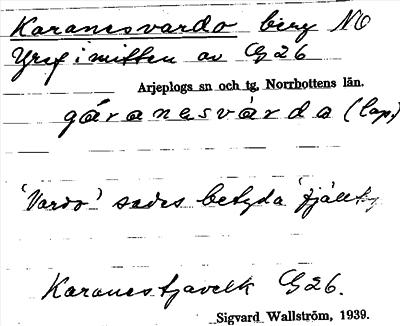 Karanesvardo berg NO
i mitten av G26
Arjeplogs sn och tg, Norrbottens län.
gáranasvárda (lap.)
'Vardo' sades betyda
Karanestjavelk G26.
Sigvard Wallström, 1939.